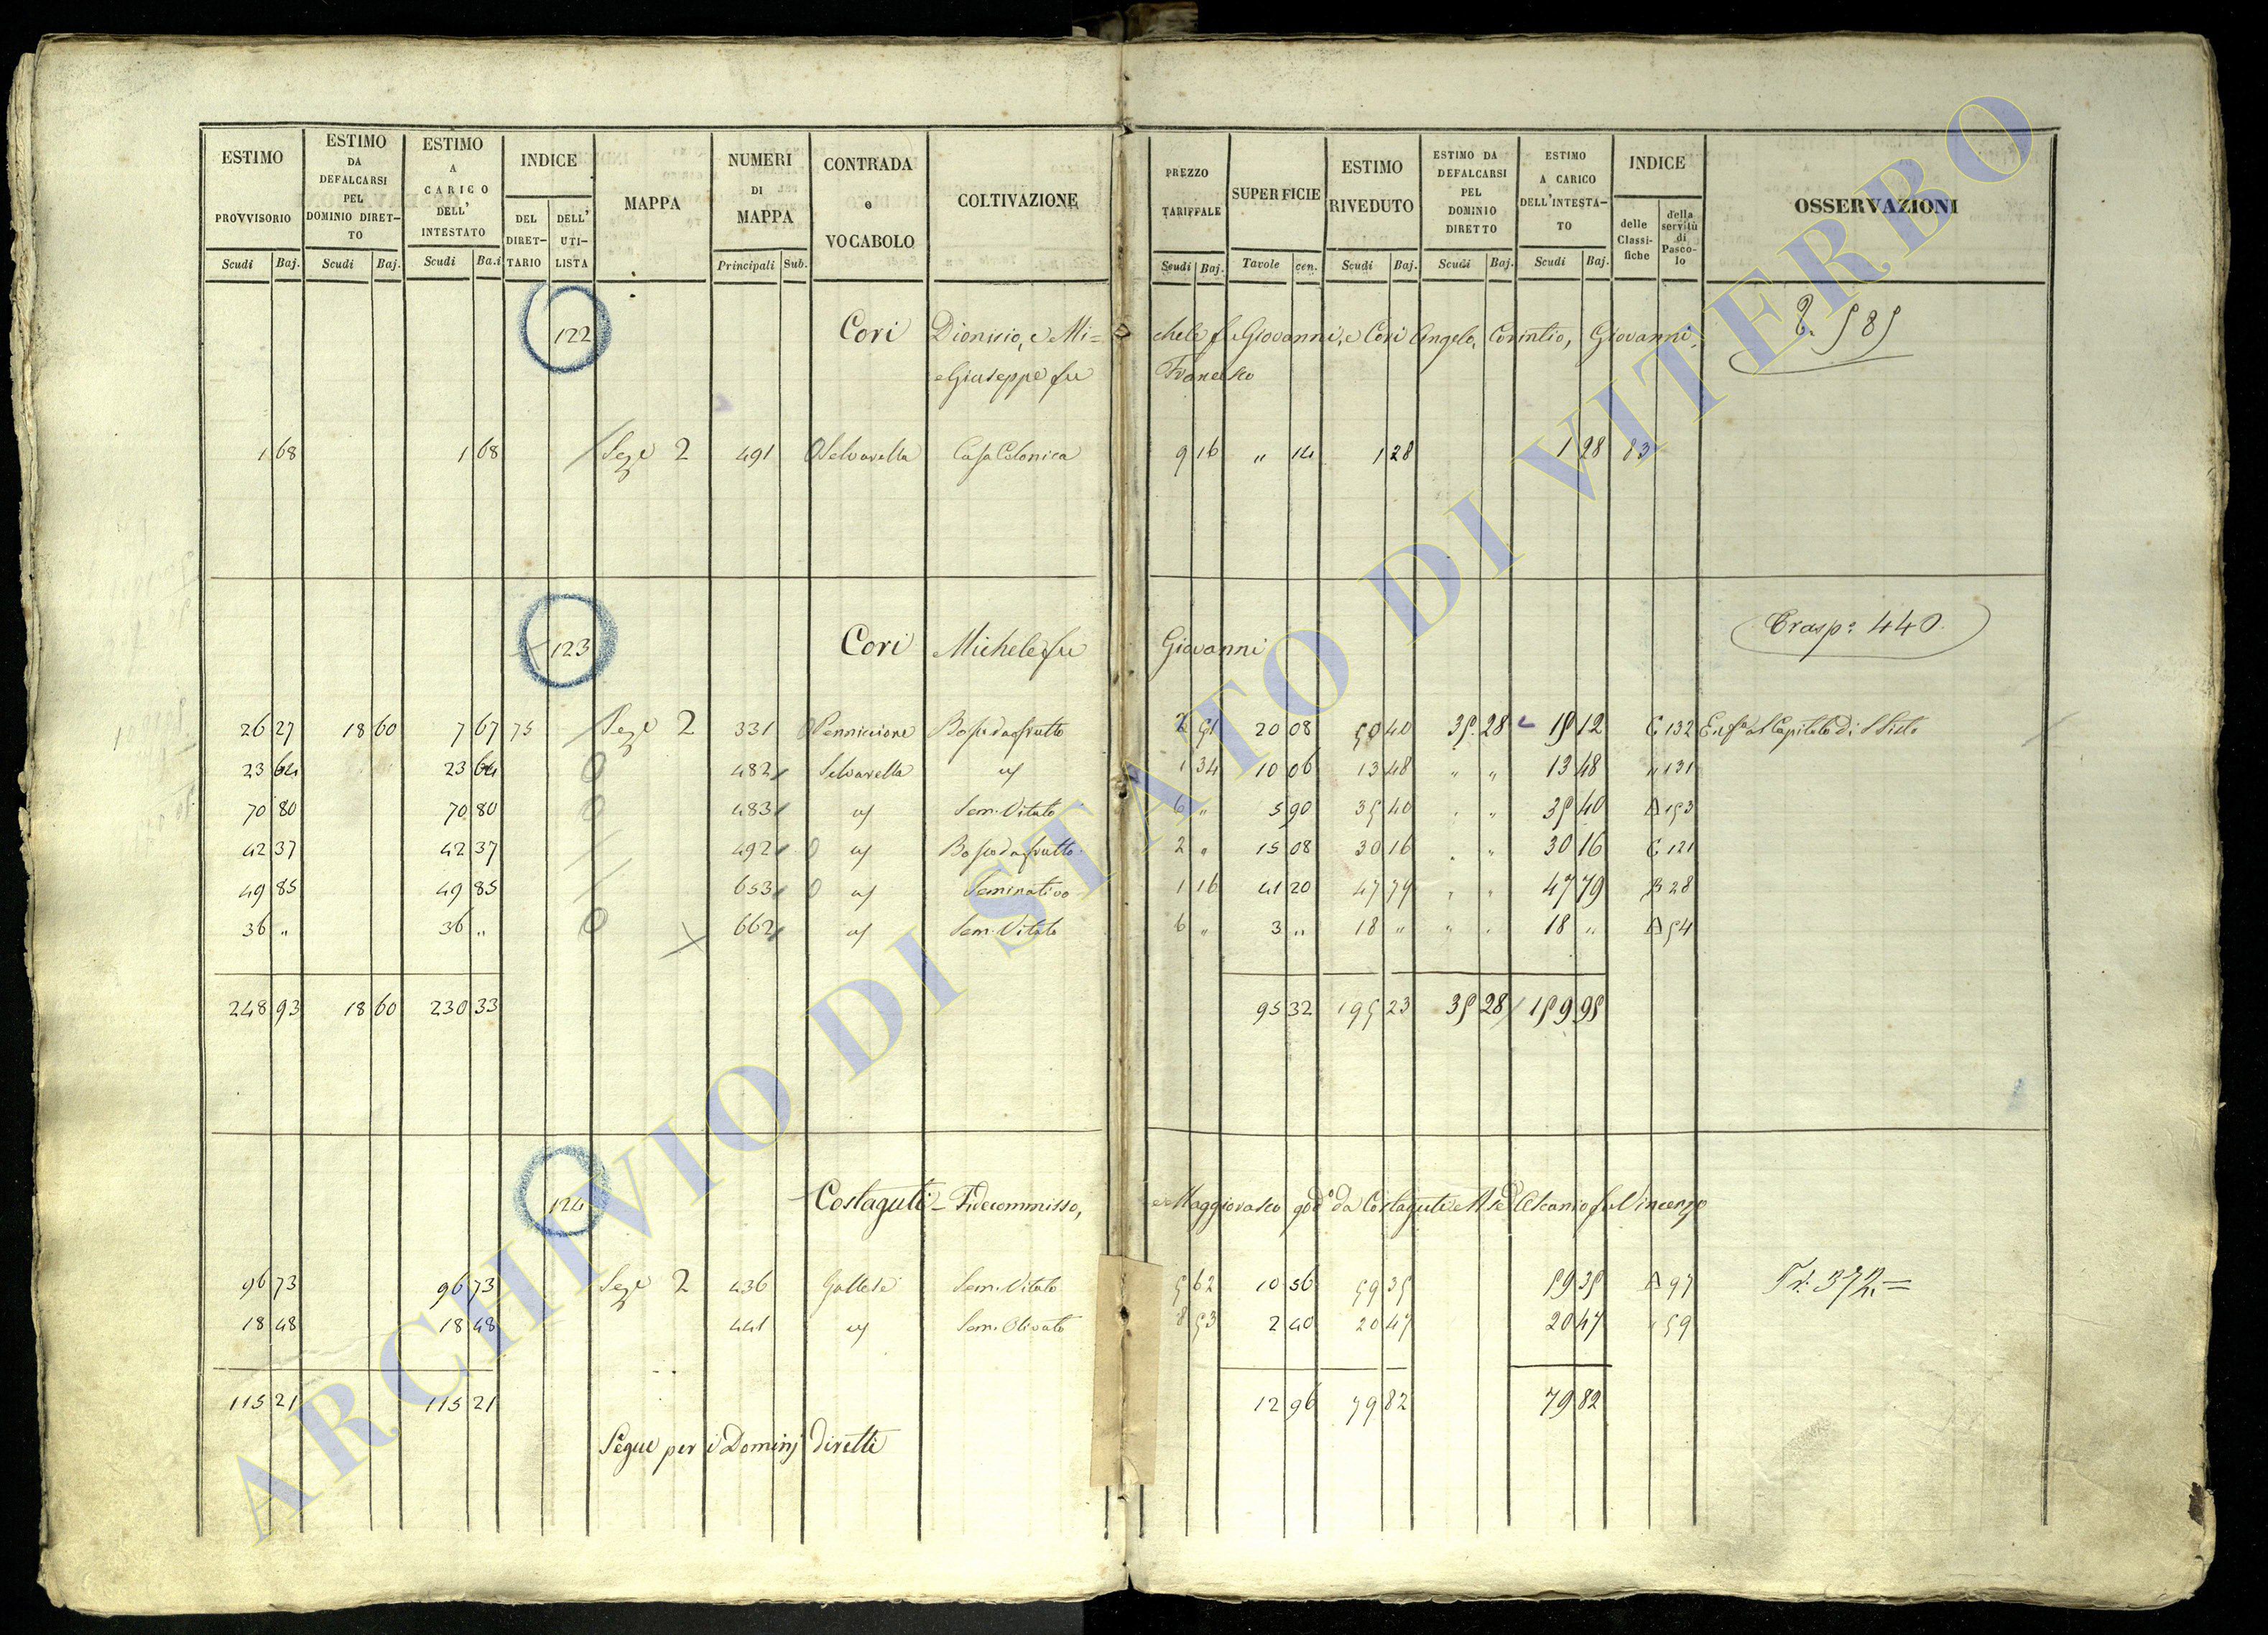 ESTIMO PROVVISORIO | ESTIMO DA DEFALCARSI PEL DOMINIO DIRETTO | ESTIMO A CARICO DELL' INTESTATO | INDICE | MAPPA | NUMERI DI MAPPA | CONTRADA e VOCABOLO | COLTIVAZIONE | PREZZO TARIFFALE | SUPERFICIE | ESTIMO RIVEDUTO | ESTIMO DA DEFALCARSI PEL DOMINIO DIRETTO | ESTIMO A CARICO DELL'INTESTATO | INDICE | OSSERVAZIONI
Scudi | Baj. | Scudi | Baj. | Scudi | Ba.i | DEL DIRETTARIO | DELL' UTILISTA | Principali | Sub. | Scudi | Baj. | Tavole | cen. | Scudi | Baj. | Scudi | Baj. | Scudi | Baj. | delle Classifiche | della servitù di Pascolo
122 Cori Dionisio, e Michele fu Giovanni, e Cori Angelo, Corintio, Giovanni,
585
Giuseppe fu Francesco
1 68 | 1 68 | Seze 2 | 491 | Selvarella | Casa Colonica | 9 16 | " 14 | 1 28 | 1 28 | 83
123 Cori Michele fu Giovanni
Trasp: 440
26 27 | 18 60 | 7 67 | 75 | Seze 2 | 331 | Pennicione | Bosco da frutto | 2 51 | 20 08 | 50 40 | 35 28 | 15 12 | C 132 | Enf. al Capitolo di S Sisto
23 64 | 23 64 | 482 | Selvarella | " | 1 34 | 10 06 | 13 48 | " " | 13 48 | " 131
70 80 | 70 80 | 483 | Sem. Vitato | 6 " | 5 90 | 35 40 | " " | 35 40 | A 153
42 37 | 42 37 | 492 | Bosco da frutto | 2 " | 15 08 | 30 16 | " " | 30 16 | C 121
49 85 | 49 85 | 653 | Seminativo | 1 16 | 41 20 | 47 79 | " " | 47 79 | B 28
36 " | 36 " | 662 | Sem. Vitato | 6 " | 3 " | 18 " | " " | 18 " | A 54
248 93 | 18 60 | 230 33 | 95 32 | 195 23 | 35 28 | 159 95
124 Costaguti - Fidecommisso, e Maggiorasco god° da Costaguti Ascanio fu Vincenzo
96 73 | 96 73 | Seze 2 | 436 | Gallese | Sem. Vitato | 5 62 | 10 56 | 59 35 | 59 35 | A 97 | Tr. 372
18 48 | 18 48 | 441 | Sem. Olivato | 8 53 | 2 40 | 20 47 | 20 47 | " 59
115 21 | 115 21 | 12 96 | 79 82 | 79 82
Segue per i Dominj diretti
ARCHIVIO DI STATO DI VITERBO